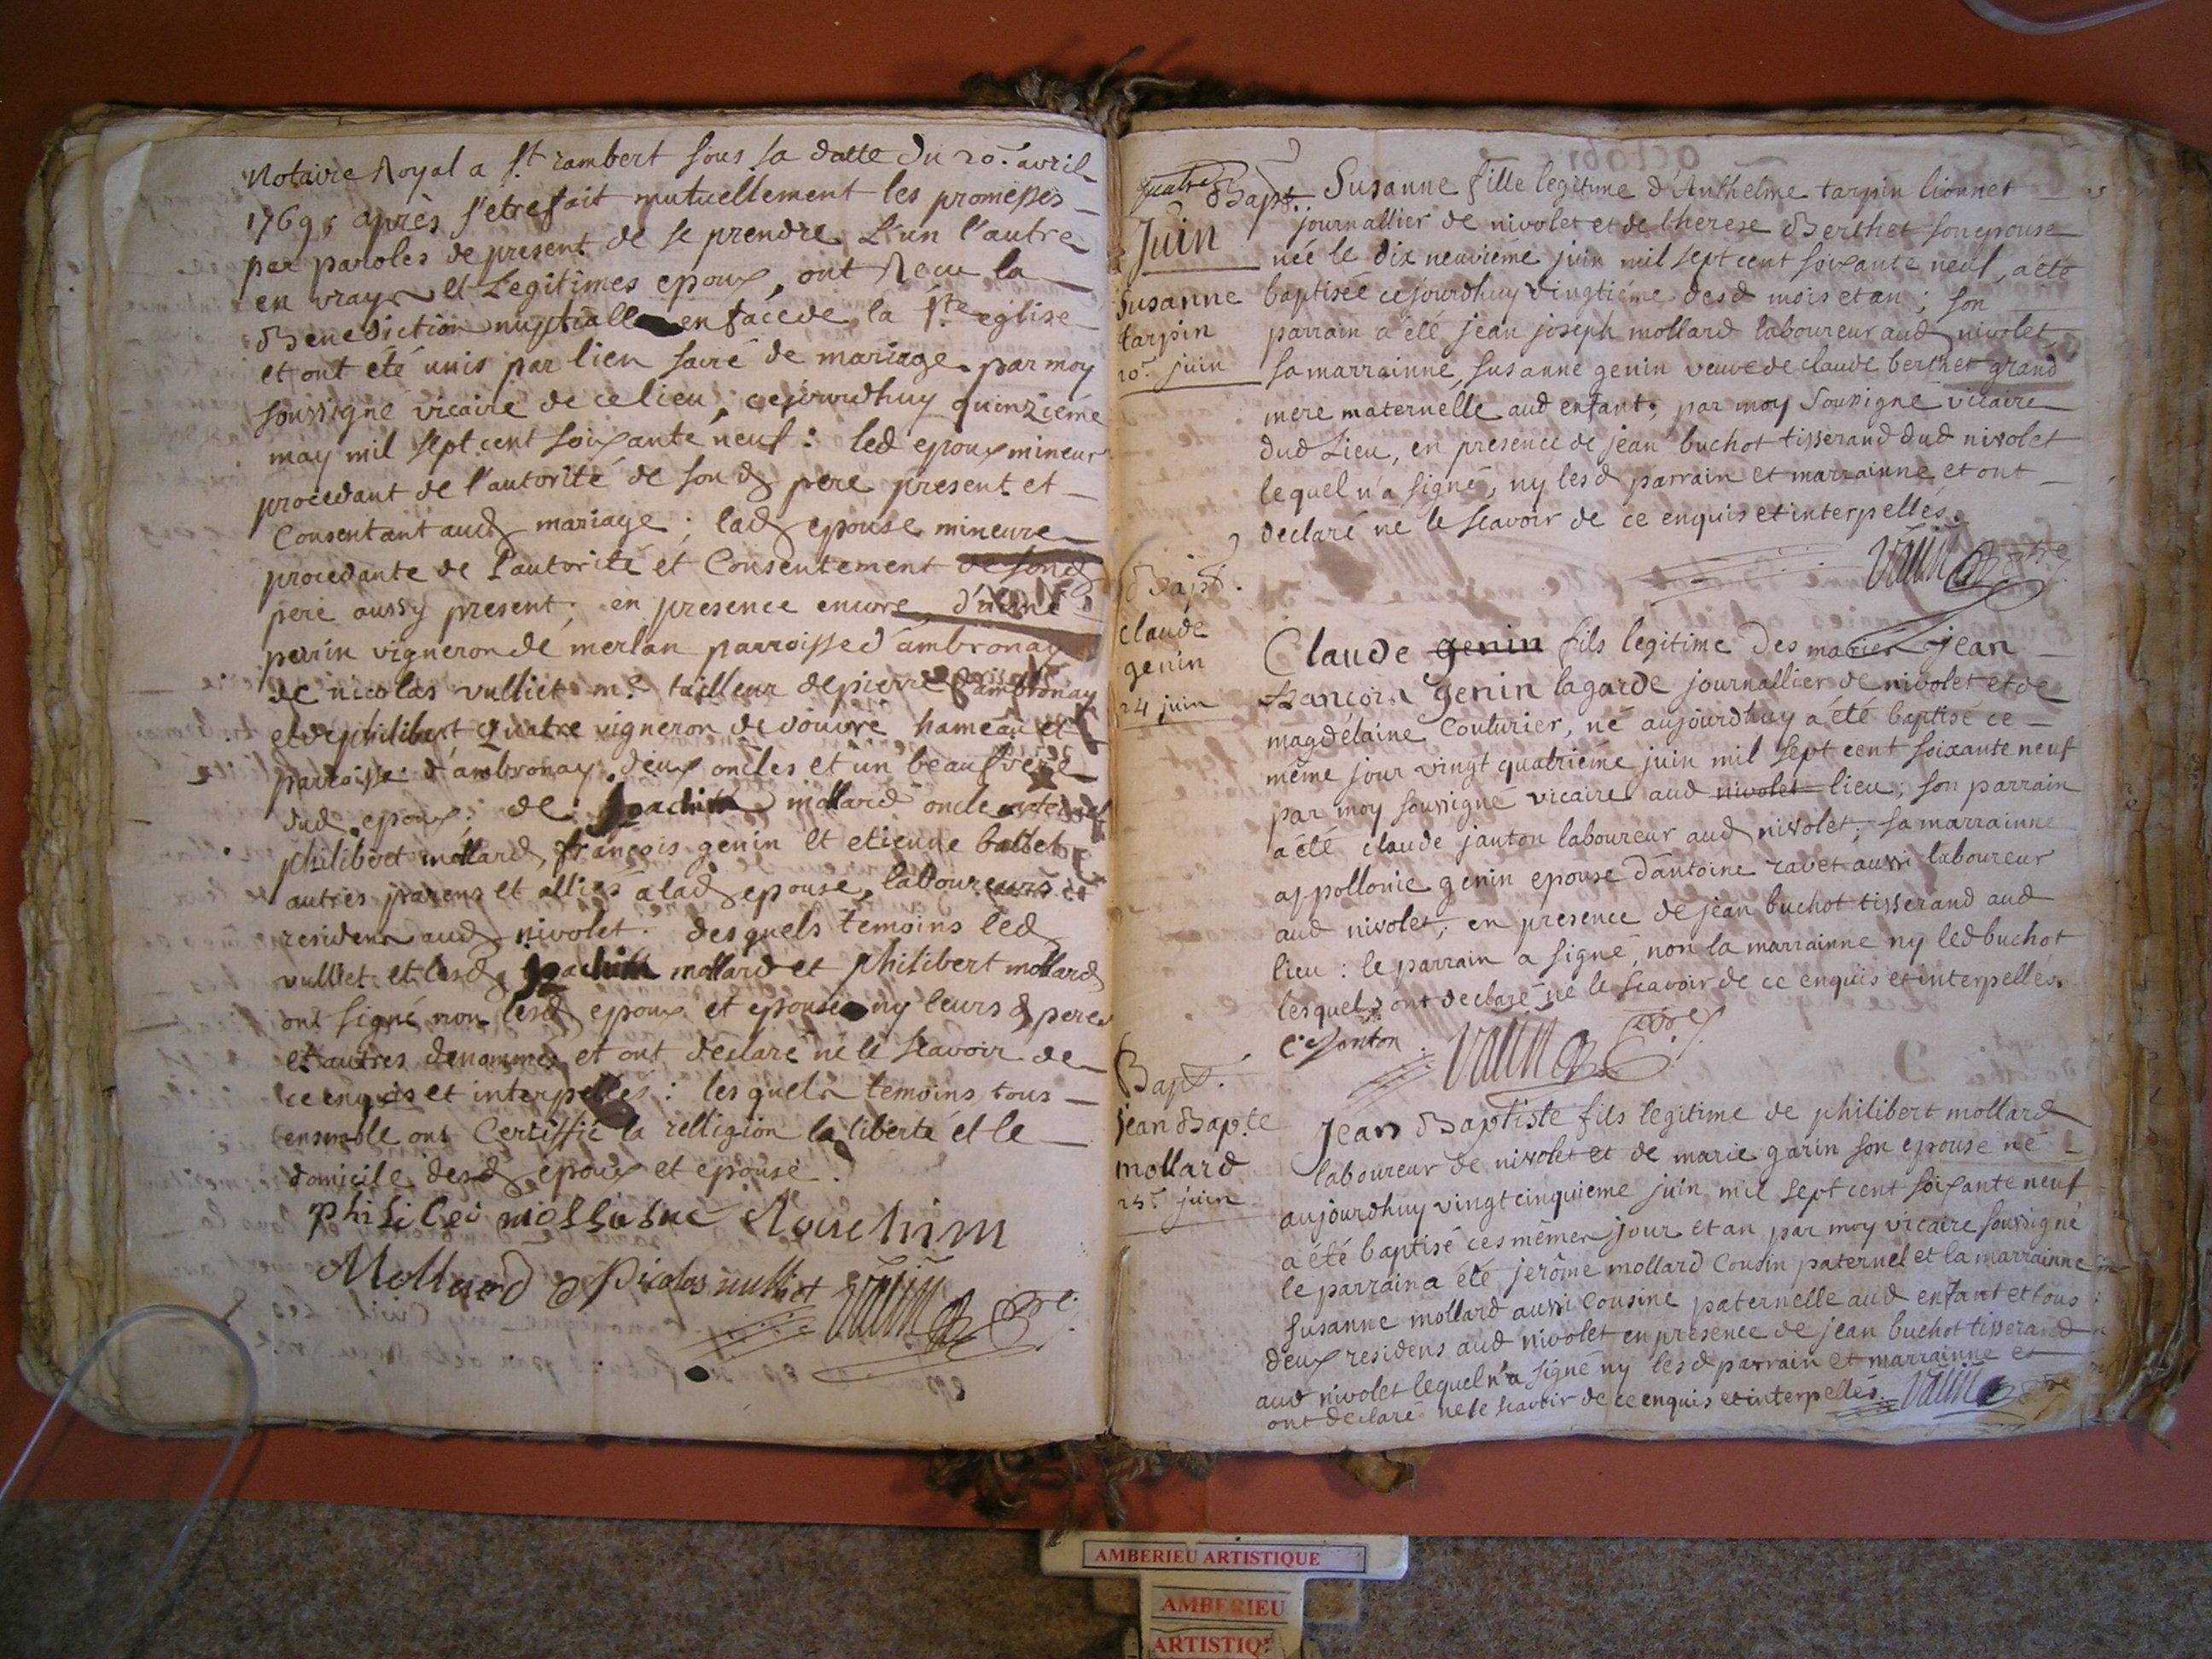 Notaire Royal a St. rambert sous la datte du 20.e avril
1769, après s'etre fait mutuellement les promesses
par paroles de present de se prendre L'un l'autre
en vrays et Legitimes epoux, ont Recu la
Benediction nuptialle en face de la Ste. eglise
et ont été unis par lien sacré de mariage par moy
soussigné vicaire de ce lieu, cejourdhuy quinzième
may mil sept cent soixante neuf: led epoux mineur
procedant de l'autorité de sond pere present et
Consentant aud mariage; lad epouse mineure
procedante de l'autorité et Consentement de sond
pere aussy present; en presence encore
perrin vigneron de merlan parroisse d'ambronay
de nicolas vulliet me. tailleur de pierre d'ambronay
et de philibert quatre vigneron de douvre hameau et
parroisse d'ambronay deux oncles et un beaufrere
dud epoux; de Joachim mollard oncle maternel
philibert mollard, françois genin et etienne ballet
autres parens et alliés a lad epouse, laboureurs et
residens aud nivolet. desquels temoins led
vulliet et lesd Joachim mollard et philibert mollard
ont signé non lesd epoux et epouse ny leurs d peres
et autres denommés et ont declaré ne le scavoir de
ce enquis et interpellés: lesquels temoins tous
ensemble ont Certiffié la relligion la liberté et le
domicile desd epoux et epouse.
Mollard Nicolas vulliet vaun
quatre Bapt.
Juin
Susanne
tarpin
20.e juin
Susanne fille legitime d'Anthelme tarpin lionnet
journallier de nivolet et de therese Berthet son epouse
née le dix neuvième juin mil sept cent soixante neuf, a été
baptisée cejourdhuy vingtième desd mois et an; son
parrain a été jean joseph mollard laboureur aud nivolet,
sa marrainne susanne genin veuve de claude berthet grand
mere maternelle aud enfant; par moy Soussigné vicaire
dud Lieu, en presence de jean buchot tisserand dud nivolet
lequel n'a signé, ny lesd parrain et marrainne et ont
declaré ne le scavoir de ce enquis et interpellés.
vaun ptre
Bapt.
claude
genin
24 juin
Claude genin fils legitime des mariés jean
françois genin lagarde journallier de nivolet et de
magdelaine Couturier, né aujourdhuy a été baptisé ce
même jour vingt quatrième juin mil sept cent soixante neuf
par moy soussigné vicaire aud nivolet lieu; son parrain
a été claude janton laboureur aud nivolet; sa marrainne
appollonie genin epouse d'antoine ravet aussi laboureur
aud nivolet; en presence de jean buchot tisserand aud
lieu: le parrain a signé, non la marrainne ny led buchot
lesquels ont declaré ne le scavoir de ce enquis et interpellés.
C. Janton vaun ptre
Bapt.
jean Bapte
mollard
25.e juin
Jean Baptiste fils legitime de philibert mollard
laboureur de nivolet et de marie garin son epouse né
aujourdhuy vingt cinquieme juin mil sept cent soixante neuf
a été baptisé ces mêmes jour et an par moy vicaire soussigné
le parrain a été jerôme mollard Cousin paternel et la marrainne
susanne mollard aussi Cousine paternelle aud enfant et tous
deux residens aud nivolet en presence de jean buchot tisserand
aud nivolet lequel n'a signé ny lesd parrain et marrainne et
ont declaré ne le scavoir de ce enquis et interpellés. vaun ptre
AMBERIEU ARTISTIQUE
AMBERIEU
ARTISTIQ